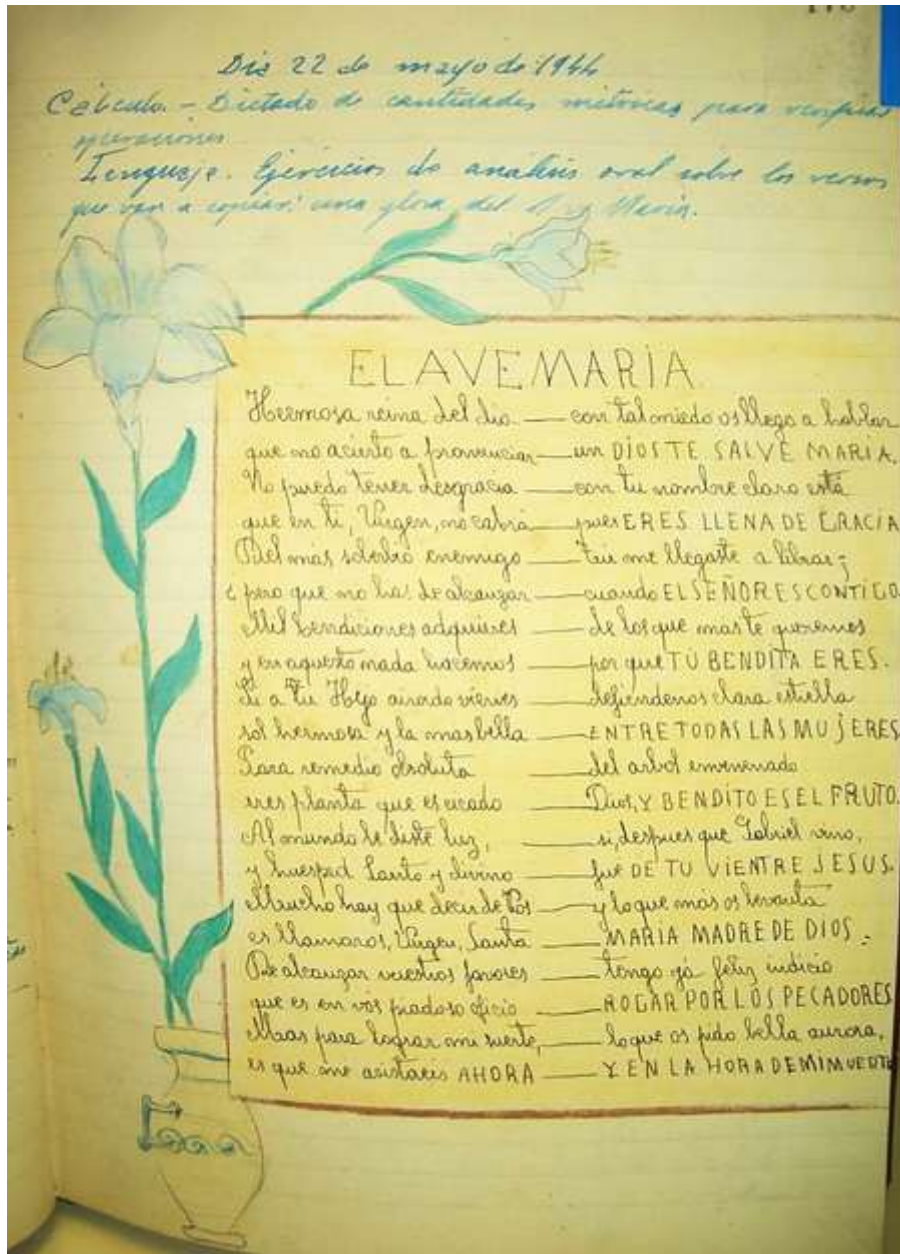 Dia 22 de mayo de 1944
Cálculo. - Dictado de cantidades métricas para
operaciones
Lenguaje. Ejercicios de análisis oral sobre los versos
que van a copiar: una glosa del Ave María.
EL AVEMARIA
Hermosa reina del dia — con tal miedo os llego a hablar
que no acierto a pronunciar — un DIOS TE SALVE MARIA.
No puedo tener desgracia — con tu nombre claro está
que en ti, Virgen, no cabrá — pues ERES LLENA DE GRACIA
Del más soberbio enemigo — tú me llegaste a librar;
¿ pero que no has de alcanzar — cuando EL SEÑOR ES CONTIGO
Mil bendiciones adquieres — de los que mas te queremos
y en aquesto nada hacemos — por que TÚ BENDITA ERES.
Si a tu Hijo airado vieres — defiendenos clara estrella
sol hermosa y la mas bella — ENTRE TODAS LAS MUJERES
Para remedio absoluto — del arbol envenenado
eres planta que — Dios, Y BENDITO ES EL FRUTO.
Al mundo le diste luz, — si, despues que Gabriel vino,
y huesped Santo y divino — fue DE TU VIENTRE JESUS.
Mucho hay que decir de Vos — y lo que más os levanta
es llamaros, Virgen, Santa — MARIA MADRE DE DIOS.
De alcanzar vuestros favores — tengo yá feliz indicio
que es en vos piadoso oficio — ROGAR POR LOS PECADORES.
Mas para lograr mi suerte, — lo que os pido bella aurora,
es que me asistais AHORA — Y EN LA HORA DE MI MUERTE